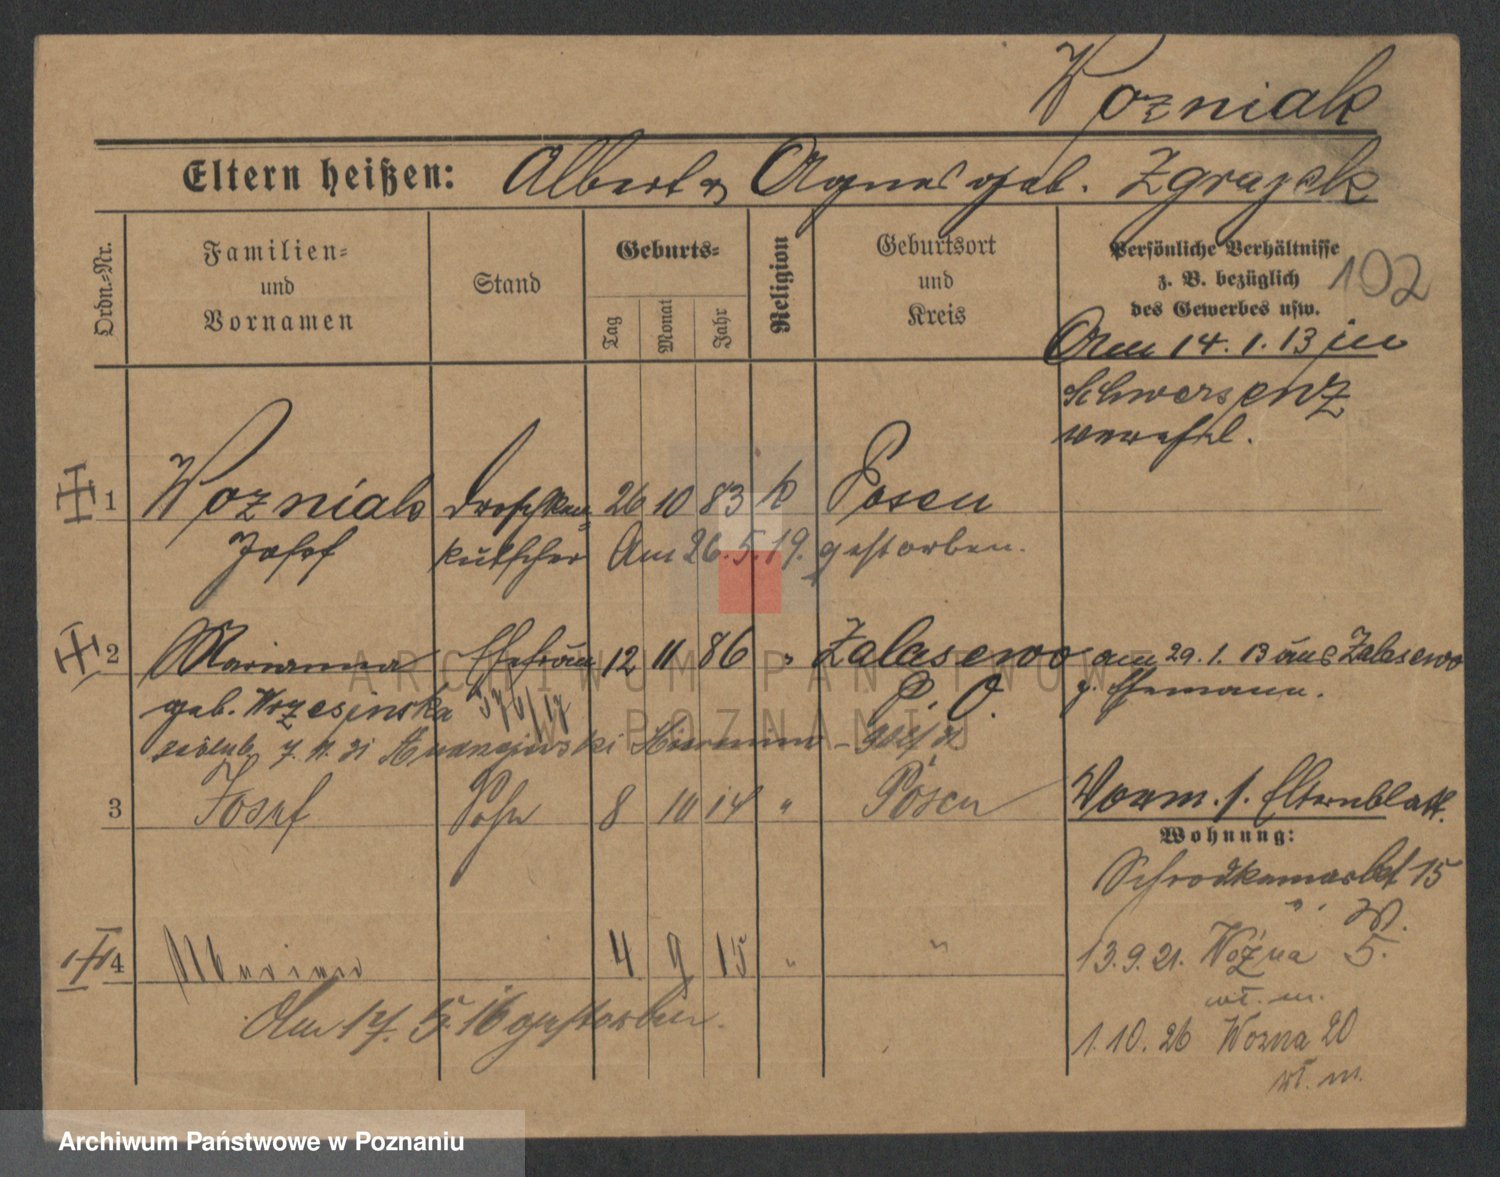 Wozniak
Eltern heißen: Albert u Agnes geb. Zgrajek
Ordn.-Nr.
Familien-
und
Vornamen
Stand
Geburts-
Tag
Monat
Jahr
Religion
Geburtsort
und
Kreis
Persönliche Verhältnisse
z. B. bezüglich
des Gewerbes usw.
192
Am 14.1.13 in
Schwersenz
verehel.
1 Wozniak Droschken= 26 10 83 k Posen
Josef kutscher Am 26.5.19. gestorben.
2 Marianna Ehefrau 12 11 86 " Zalasewo am 29.1.13 aus Zalasewo
geb. Wrzesinska P. O. z. Ehemann.
7. 11. 31
3 Josef Sohn 8 10 14 " Posen
Vorm. s. Elternblatt.
Wohnung:
Schrodkamarkt 15
4 Marian 4 9 15 " "
Am 17. 5. 16 gestorben.
13.9.21. Woźna 5.
wł. m.
1.10.26 Wozna 20
wł. m.
ARCHIWUM PAŃSTWOWE
W POZNANIU
Archiwum Państwowe w Poznaniu